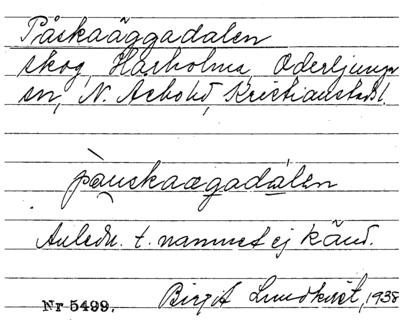 Påskaäggadalen
skog, Haxholma, Oderljunga
sn, N. Åsbohd, Kristianstads l.
pàuskaægadálen
Anledn. t. namnet ej känd.
Nr 5499. Birgit Lundkvist, 1938